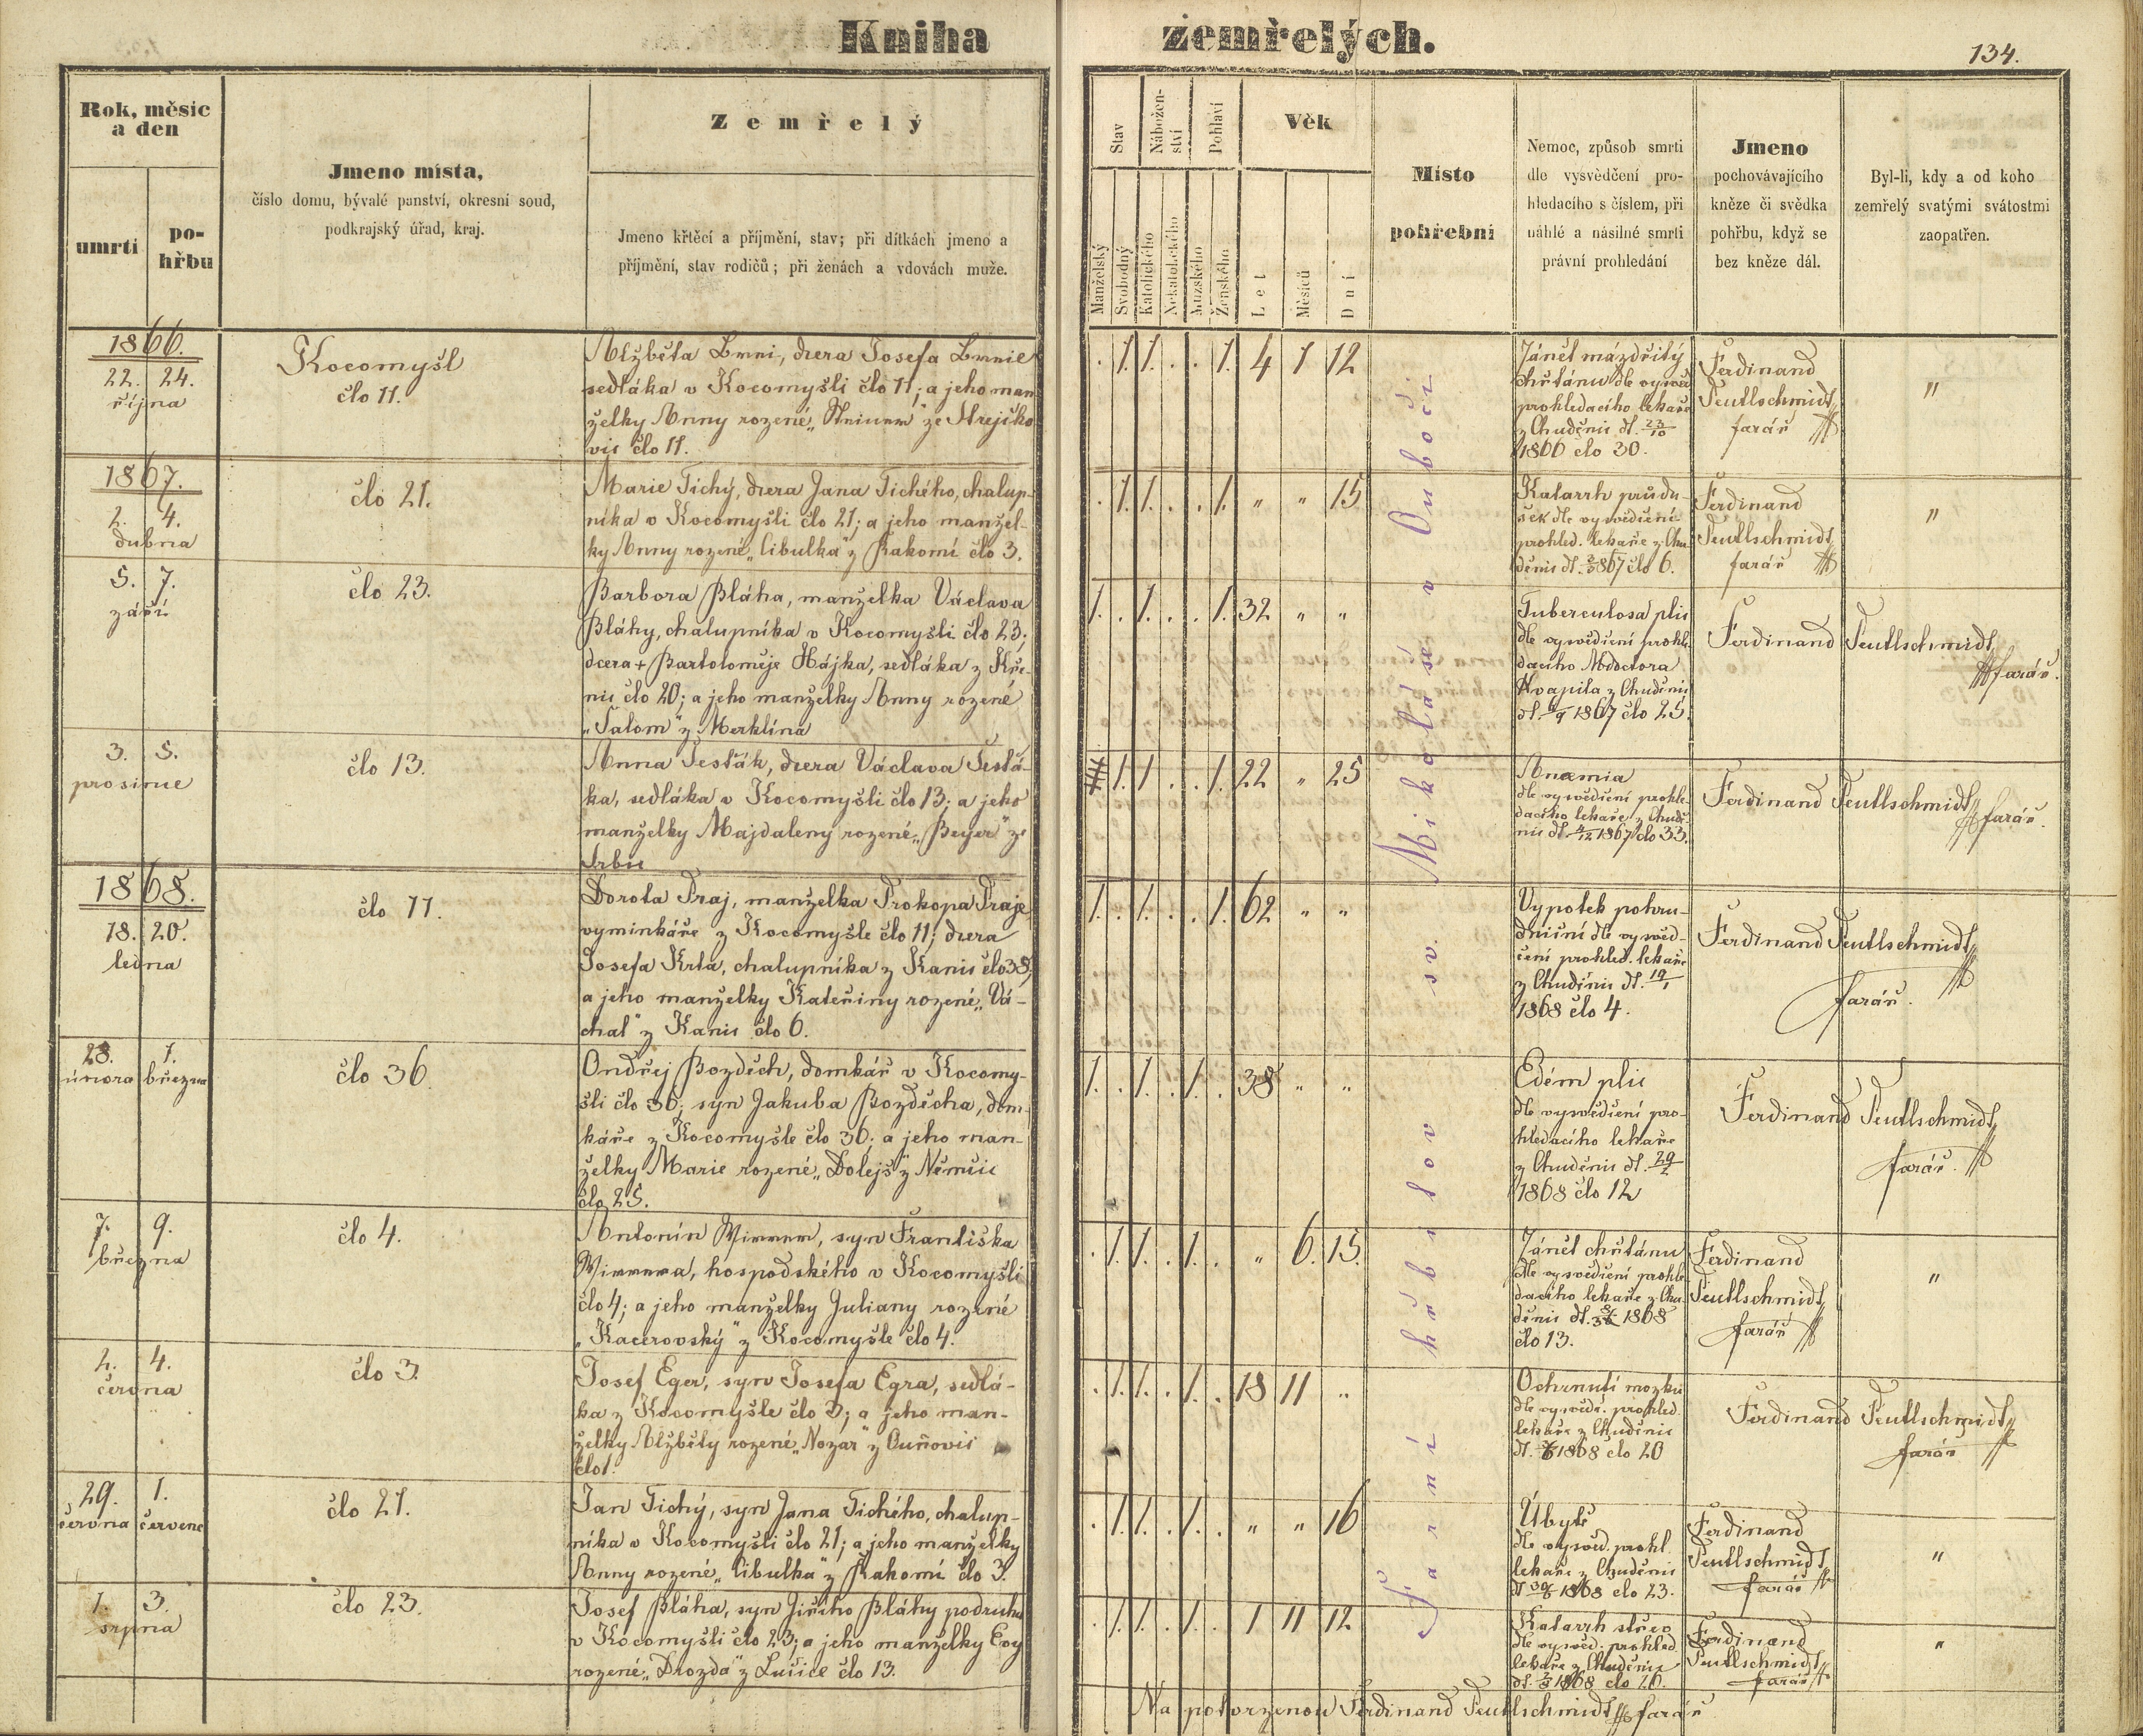 Kniha zemřelých.
134.
Rok, měsíc
a den
umrtí
po-
hřbu
Jmeno místa,
číslo domu, bývalé panství, okresní soud,
podkrajský úřad, kraj.
Zemřelý
Jmeno křtěcí a příjmění, stav; při dítkách jmeno a
příjmění, stav rodičů; při ženách a vdovách muže.
Stav
Manželský
Svobodný
Nábožen-
ství
Katolického
Nekatolického
Pohlaví
Mužského
Ženského
Věk
Let
Měsíců
Dní
Místo
pohřební
Nemoc, způsob smrti
dle vysvědčení pro-
hledacího s číslem, při
náhlé a násilné smrti
právní prohledání
Jmeno
pochovávajícího
kněze či svědka
pohřbu, když se
bez kněze dál.
Byl-li, kdy a od koho
zemřelý svatými svátostmi
zaopatřen.
1866.
22. 24.
října
Kocomyšl
člo 11.
Alžběta, dcera Josefa
sedláka v Kocomyšli člo 11; a jeho man
želky Anny rozené ze
vic člo 11.
. 1. 1. . . 1. 4 1 12
Zánět mázdřitý
chřtánu dle vysvěd
prohledacího lekaře
z Chuděnic dt. 23/10
1866 člo 30.
Ferdinand
Peutlschmidt
farář
"
1867.
2. 4.
dubna
člo 21.
Marie Tichý, dcera Jana Tichého, chalup-
níka v Kocomyšli člo 21; a jeho manžel-
ky Anny rozené „Cibulka" z Bakomí člo 3.
. 1. 1. . . 1. " " 15
Katarrh průdu-
šek dle vysvědčení
prohled. lekaře z Chu
děnic dt. 1867 člo 6.
Ferdinand
Peutlschmidt
farář
"
5. 7.
září
člo 23.
Barbora Bláha, manželka Václava
Bláhy, chalupníka v Kocomyšli člo 23;
dcera + Bartoloměje Hájka, sedláka z Kře-
nic člo 20; a jeho manželky Anny rozené
„Šalom" z Merklína
1. . 1. . . 1. 32 " "
Tuberculosa plic
dle vysvědčení prohle
dacího Mdoctora
Kvapila z Chuděnic
dt. 1867 člo 25.
Ferdinand Peutlschmidt
farář.
3. 5.
prosince
člo 13.
Anna Šesták, dcera Václava Šestá-
ka, sedláka v Kocomyšli člo 13; a jeho
manželky Majdaleny rozené „Beyer" ze
Srbic
1. 1. . . 1. 22 " 25
Anæmia
dle vysvědčení prohle-
dacího lekaře z Chudě-
nic dt. 4/12 1867 člo 33.
Ferdinand Peutlschmidt
farář.
1868.
18. 20.
ledna
člo 11.
Dorota Praj, manželka Prokopa Praje
vyminkáře z Kocomyšle člo 11; dcera
Josefa Krta, chalupníka z Kanic člo 38,
a jeho manželky Kateřiny rozené „Vá-
chal" z Kanic člo 6.
1. . 1. . . 1. 62 " "
Vypotek pohru-
dniční dle vysvěd-
čení prohled. lekaře
z Chuděnic dt. 19/1
1868 člo 4.
Ferdinand Peutlschmidt
farář.
28. 1.
února března
člo 36.
Ondřej Bozděch, domkář v Kocomy-
šli člo 36; syn Jakuba Bozděcha, dom-
káře z Kocomyšle člo 36; a jeho man-
želky Marie rozené „Dolejš" z Němčic
člo 25.
1. . 1. . 1. . 38 " "
Edém plic
dle vysvědčení pro-
hledacího lekaře
z Chuděnic dt. 29/2
1868 člo 12
Ferdinand Peutlschmidt
farář.
7. 9.
března
člo 4.
Antonín, syn Františka
hospodského v Kocomyšli
člo 4; a jeho manželky Juliany rozené
„Kacerovský" z Kocomyšle člo 4.
. 1. 1. . 1. . " 6. 15.
Zánět chřtánu
dle vysvědčení prohle
dacího lekaře z Chu-
děnic dt. 1868
člo 13.
Ferdinand
Peutlschmidt
farář
"
2. 4.
června
člo 3.
Josef Eger, syn Josefa Egra, sedlá-
ka z Kocomyšle člo 3; a jeho man-
želky Alžběty rozené „Nozar" z Ouňovic
člo 1.
. 1. 1. . 1. . 18 11 "
Ochrnutí mozku
dle vysvěd. prohled.
lekaře z Chuděnic
dt. 1868 člo 20
Ferdinand Peutlschmidt
farář
29. 1.
června července
člo 21.
Jan Tichý, syn Jana Tichého, chalup-
níka v Kocomyšli člo 21; a jeho manželky
Anny rozené „Cibulka" z Bakomí člo 3.
. 1. 1. . 1. . " " 16
Úbytě
dle vysvěd. prohl.
lekaře z Chuděnic
dt 30/6 1868 člo 23.
Ferdinand
Peutlschmidt
farář
"
1. 3.
srpna
člo 23.
Josef Bláha, syn Jiřího Bláhy podruha
v Kocomyšli člo 23; a jeho manželky Evy
rozené „Drozda" z Lučice člo 13.
. 1. 1. . 1. . 1 11 12
Katarrh střev
dle vysvěd. prohled.
lekaře z Chuděnic
dt. 1868 člo 26.
Ferdinand
Peutlschmidt
farář
"
Farní hřbitov sv. Mikoláše v Ouboči
Na potvrzenou Ferdinand Peutlschmidt farář